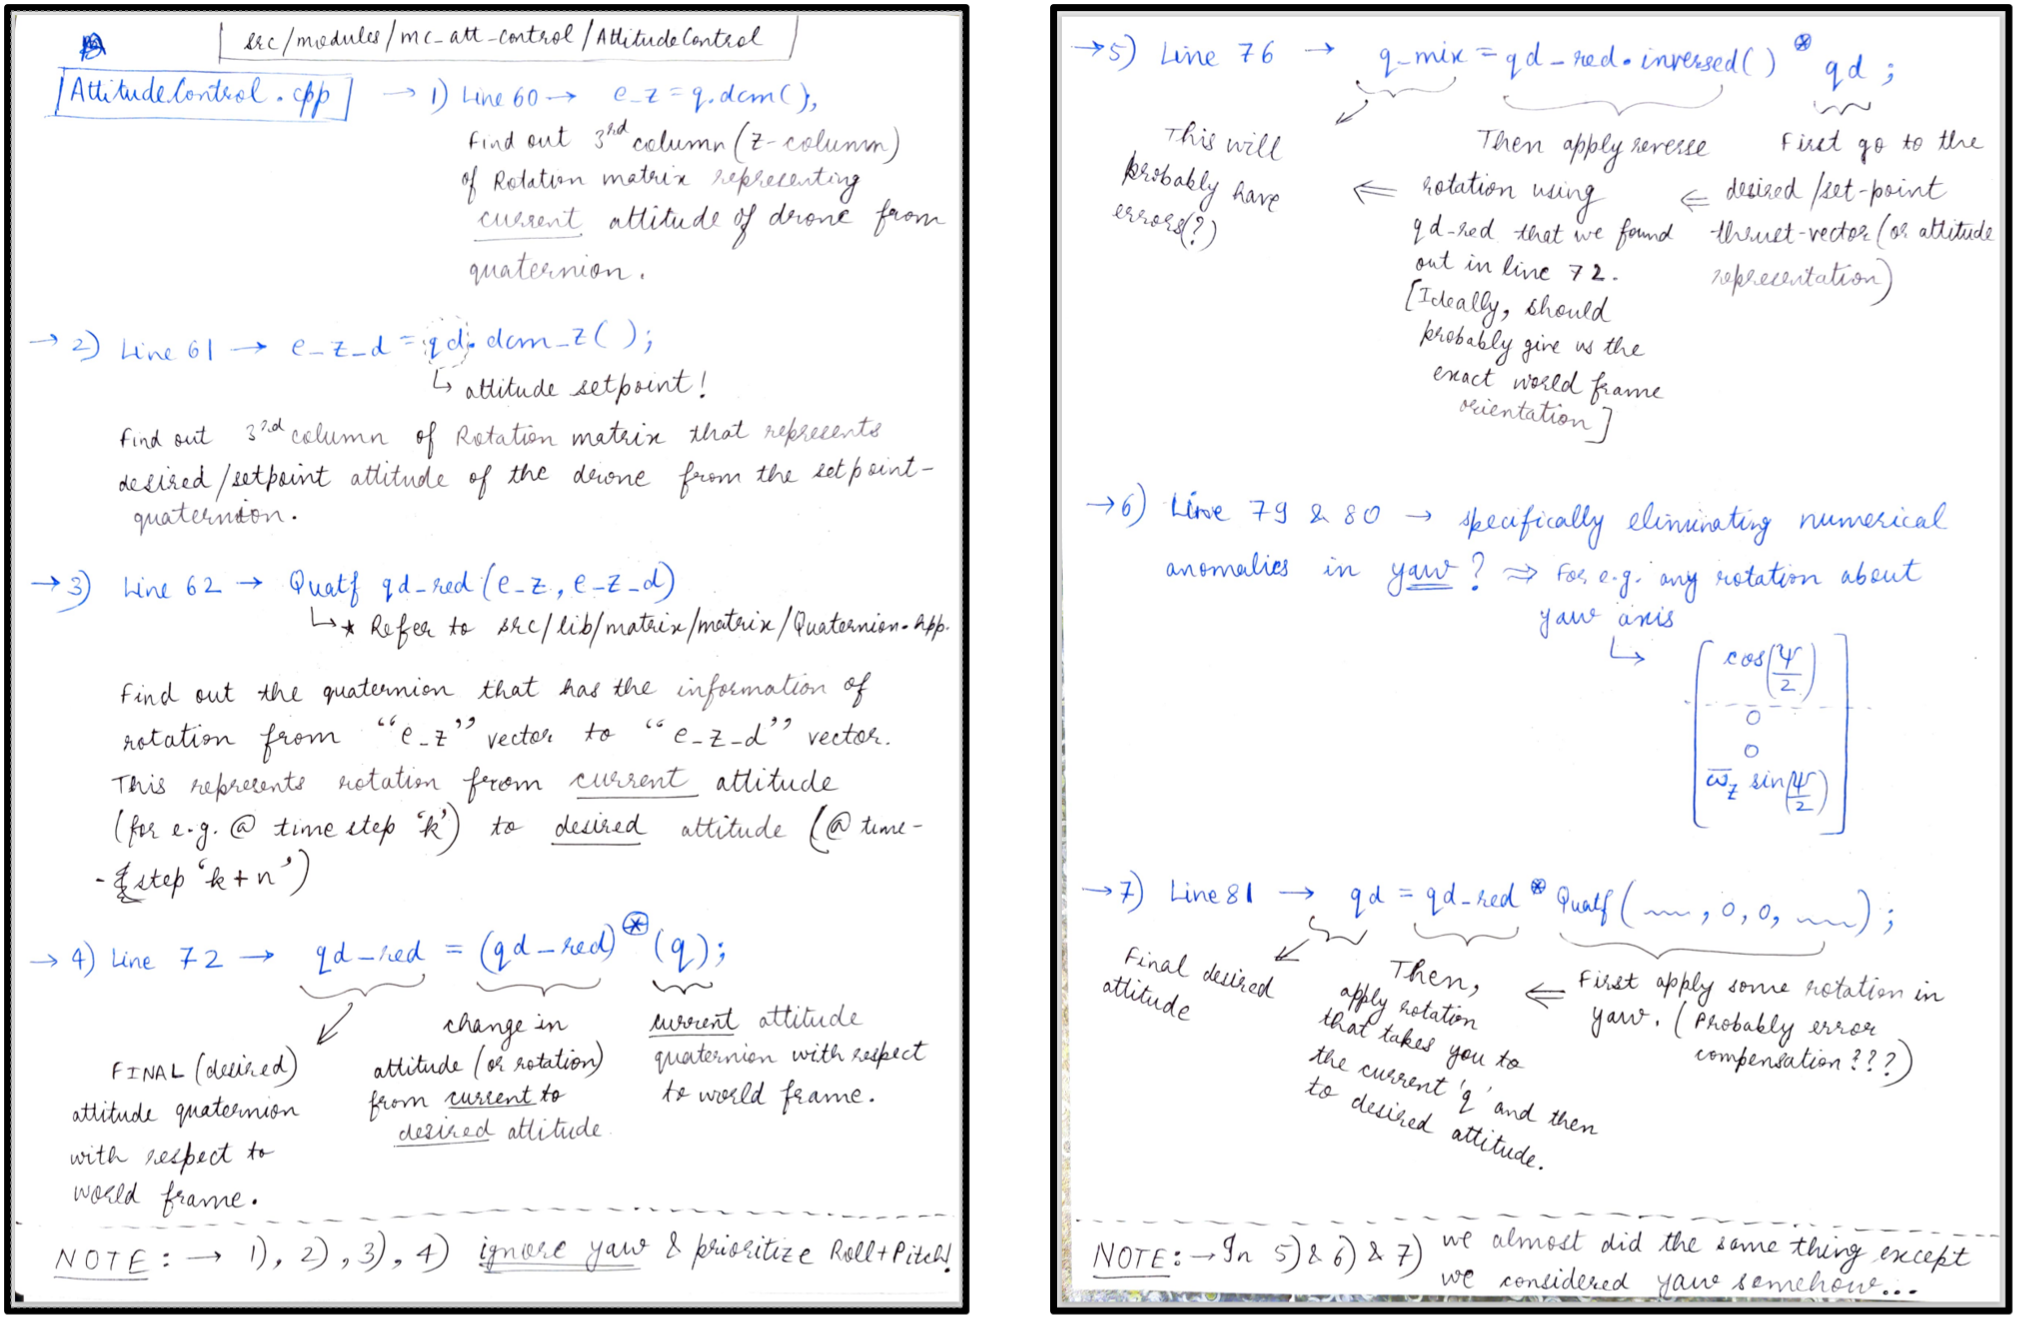 src/modules/mc_att_control/AttitudeControl
AttitudeControl.cpp → 1) Line 60 → e_z = q.dcm(),
Find out 3rd column (z-column)
of Rotation matrix representing
current attitude of drone from
quaternion.
→ 2) Line 61 → e_z_d = qd.dcm_z();
↳ attitude setpoint!
Find out 3rd column of Rotation matrix that represents
desired/setpoint attitude of the drone from the setpoint-
quaternion.
→ 3) Line 62 → Quatf qd_red (e_z, e_z_d)
↳ * Refer to src/lib/matrix/matrix/Quaternion.hpp.
Find out the quaternion that has the information of
rotation from "e_z" vector to "e_z_d" vector.
This represents rotation from current attitude
(for e.g. @ time step 'k') to desired attitude (@ time-
-step 'k+n')
→ 4) Line 72 → qd_red = (qd_red) * (q);
FINAL (desired)
attitude quaternion
with respect to
world frame.
change in
attitude (or rotation)
from current to
desired attitude.
current attitude
quaternion with respect
to world frame.
NOTE: → 1), 2), 3), 4) ignore yaw & prioritize Roll+Pitch!
→ 5) Line 76 → q_mix = qd_red.inversed() * qd;
This will
probably have
errors(?)
⇐
Then apply reverse
rotation using
qd_red that we found
out in line 72.
[Ideally, should
probably give us the
exact world frame
orientation]
⇐
First go to the
desired/set-point
thrust-vector (or attitude
representation)
→ 6) Line 79 & 80 → specifically eliminating numerical
anomalies in yaw? ⇒ For e.g. any rotation about
yaw axis
↳
cos(ψ/2)
0
0
ω̅z sin(ψ/2)
→ 7) Line 81 → qd = qd_red * Quatf( ~~, 0, 0, ~~ );
Final desired
attitude
Then,
apply rotation
that takes you to
the current 'q' and then
to desired attitude.
⇐
First apply some rotation in
yaw. (Probably error
compensation???)
NOTE: → In 5) & 6) & 7) we almost did the same thing except
we considered yaw somehow...